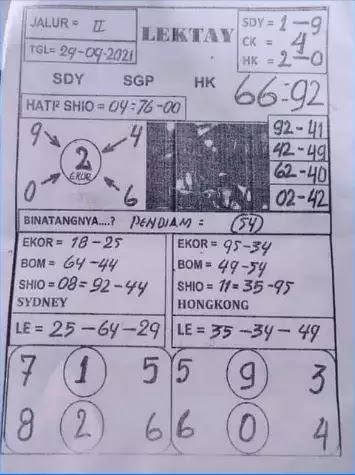 JALUR = II
TGL= 29-09-2021
LEKTAY
SDY = 1-9
CK = 4
HK = 2-0
SDY SGP HK
66=92
HATI² SHIO = 04=76-00
9 4
2
EKOR
0 6
92-41
42-49
62-40
02-42
BINATANGNYA....? PENDIAM = (54)
EKOR = 18-25
BOM = 64-44
SHIO = 08=92-44
SYDNEY
EKOR = 95-34
BOM = 49-54
SHIO = 11=35-95
HONGKONG
LE = 25-64-29
LE = 35-34-49
7 1 5 5 9 3
8 2 6 6 0 4